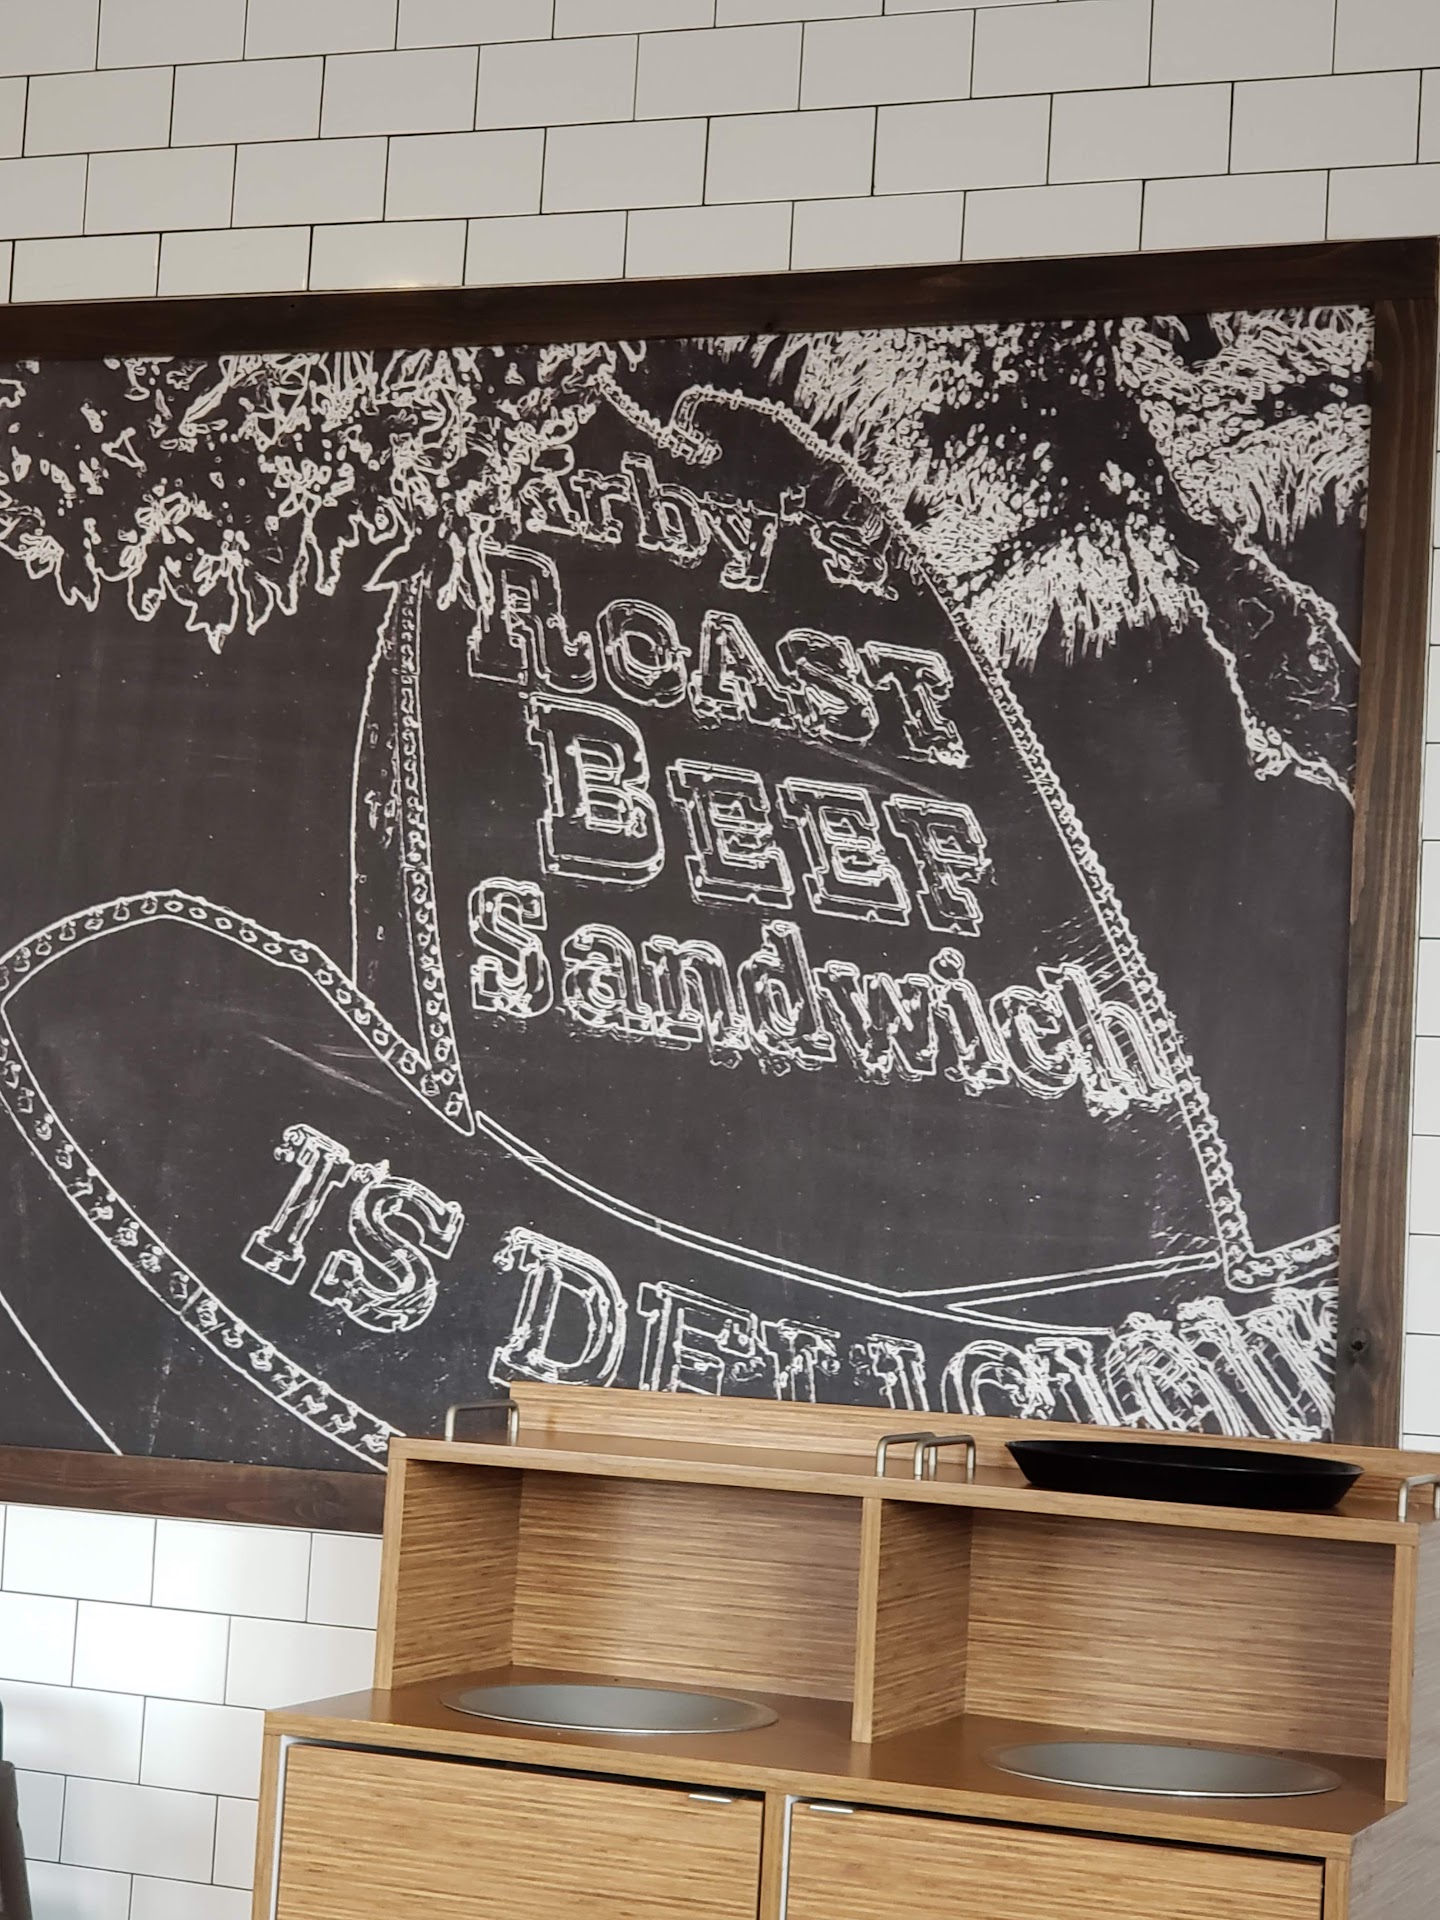 Arby's
ROAST
BEEF
Sandwich
IS DELICIOUS